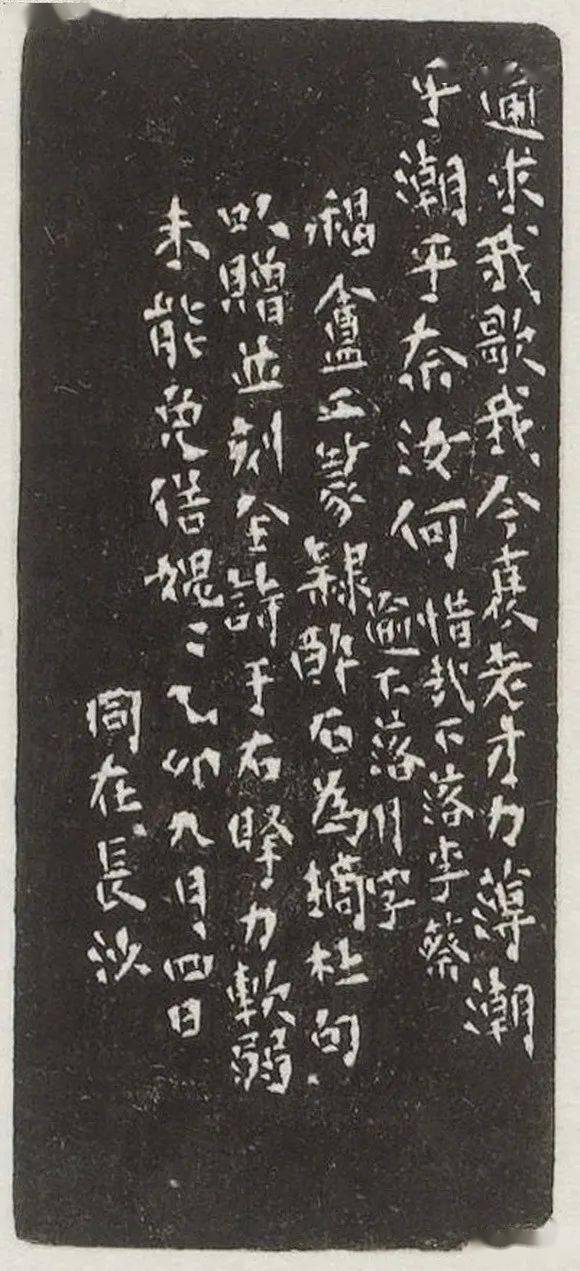 逾求我歌我今衰老才力薄潮
乎潮乎奈汝何惜我下落李蔡
逾下落月字
福盦工篆隸酔石為摘杜句
以贈並刻全詩于右力軟弱
未能免俗媿〻乙卯九月四日
同在長沙